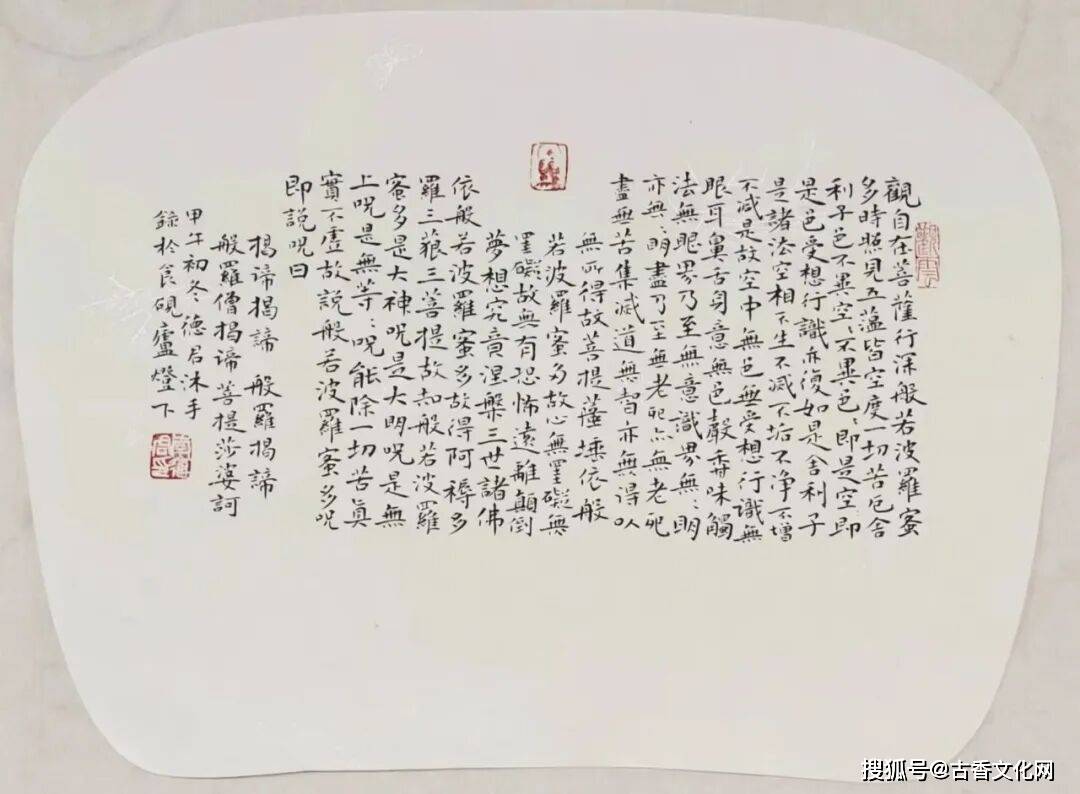 觀自在菩薩行深般若波羅蜜
多時照見五蘊皆空度一切苦厄舍
利子色不異空〻不異色〻即是空即
是色受想行識亦復如是舍利子
是諸法空相不生不滅不垢不淨不增
不減是故空中無色無受想行識無
眼耳鼻舌身意無色聲香味觸
法無眼界乃至無意識界無〻明
亦無〻明盡乃至無老死亦無老死
盡無苦集滅道無智亦無得以
無所得故菩提薩埵依般
若波羅蜜多故心無罣礙無
罣礙故無有恐怖遠離顛倒
夢想究竟涅槃三世諸佛
依般若波羅蜜多故得阿耨多
羅三藐三菩提故知般若波羅
蜜多是大神呪是大明呪是無
上呪是無等〻呪能除一切苦真
實不虛故說般若波羅蜜多呪
即說呪曰
揭諦揭諦 般羅揭諦
般羅僧揭諦 菩提莎婆訶
甲午初冬德君沐手
錄於食硯廬燈下
搜狐号@古香文化网